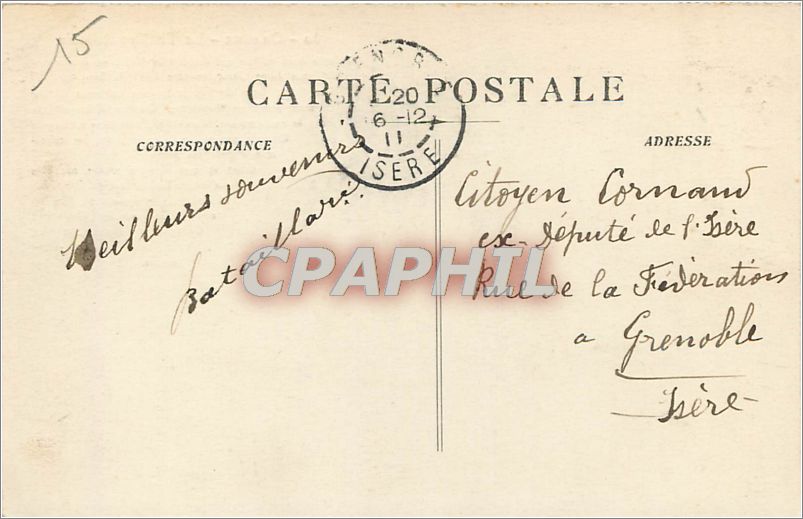 15
CARTE POSTALE
20
6-12
11
ISERE
CORRESPONDANCE
ADRESSE
Meilleurs souvenirs
Bataillard
Citoyen Cornand
ex-Député de l'Isère
Rue de la Fédérations
a Grenoble
Isère
CPAPHIL